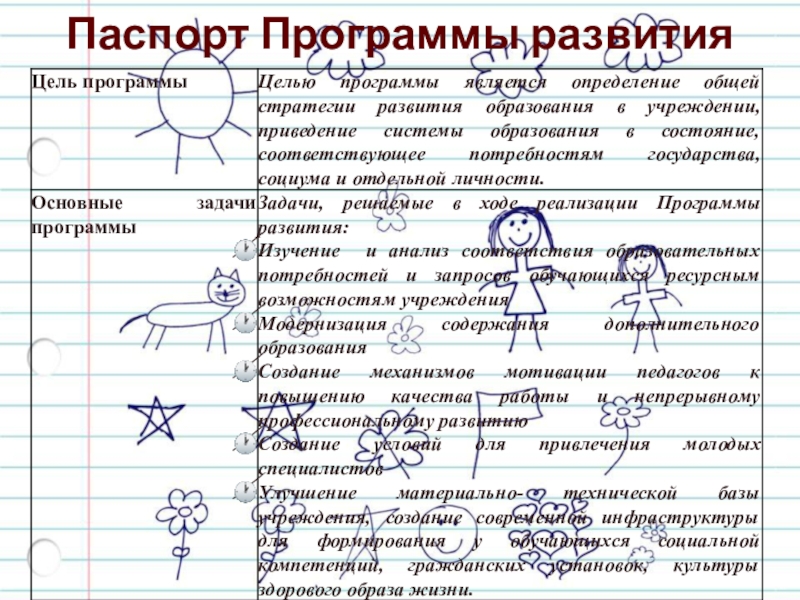 Паспорт Программы развития
Цель программы
Целью программы является определение общей
стратегии развития образования в учреждении,
приведение системы образования в состояние,
соответствующее потребностям государства,
социума и отдельной личности.
Основные задачи
программы
Задачи, решаемые в ходе реализации Программы
развития:
Изучение и анализ соответствия образовательных
потребностей и запросов обучающихся ресурсным
возможностям учреждения
Модернизация содержания дополнительного
образования
Создание механизмов мотивации педагогов к
повышению качества работы и непрерывному
профессиональному развитию
Создание условий для привлечения молодых
специалистов
Улучшение материально- технической базы
учреждения, создание современной инфраструктуры
для формирования у обучающихся социальной
компетенции, гражданских установок, культуры
здорового образа жизни.